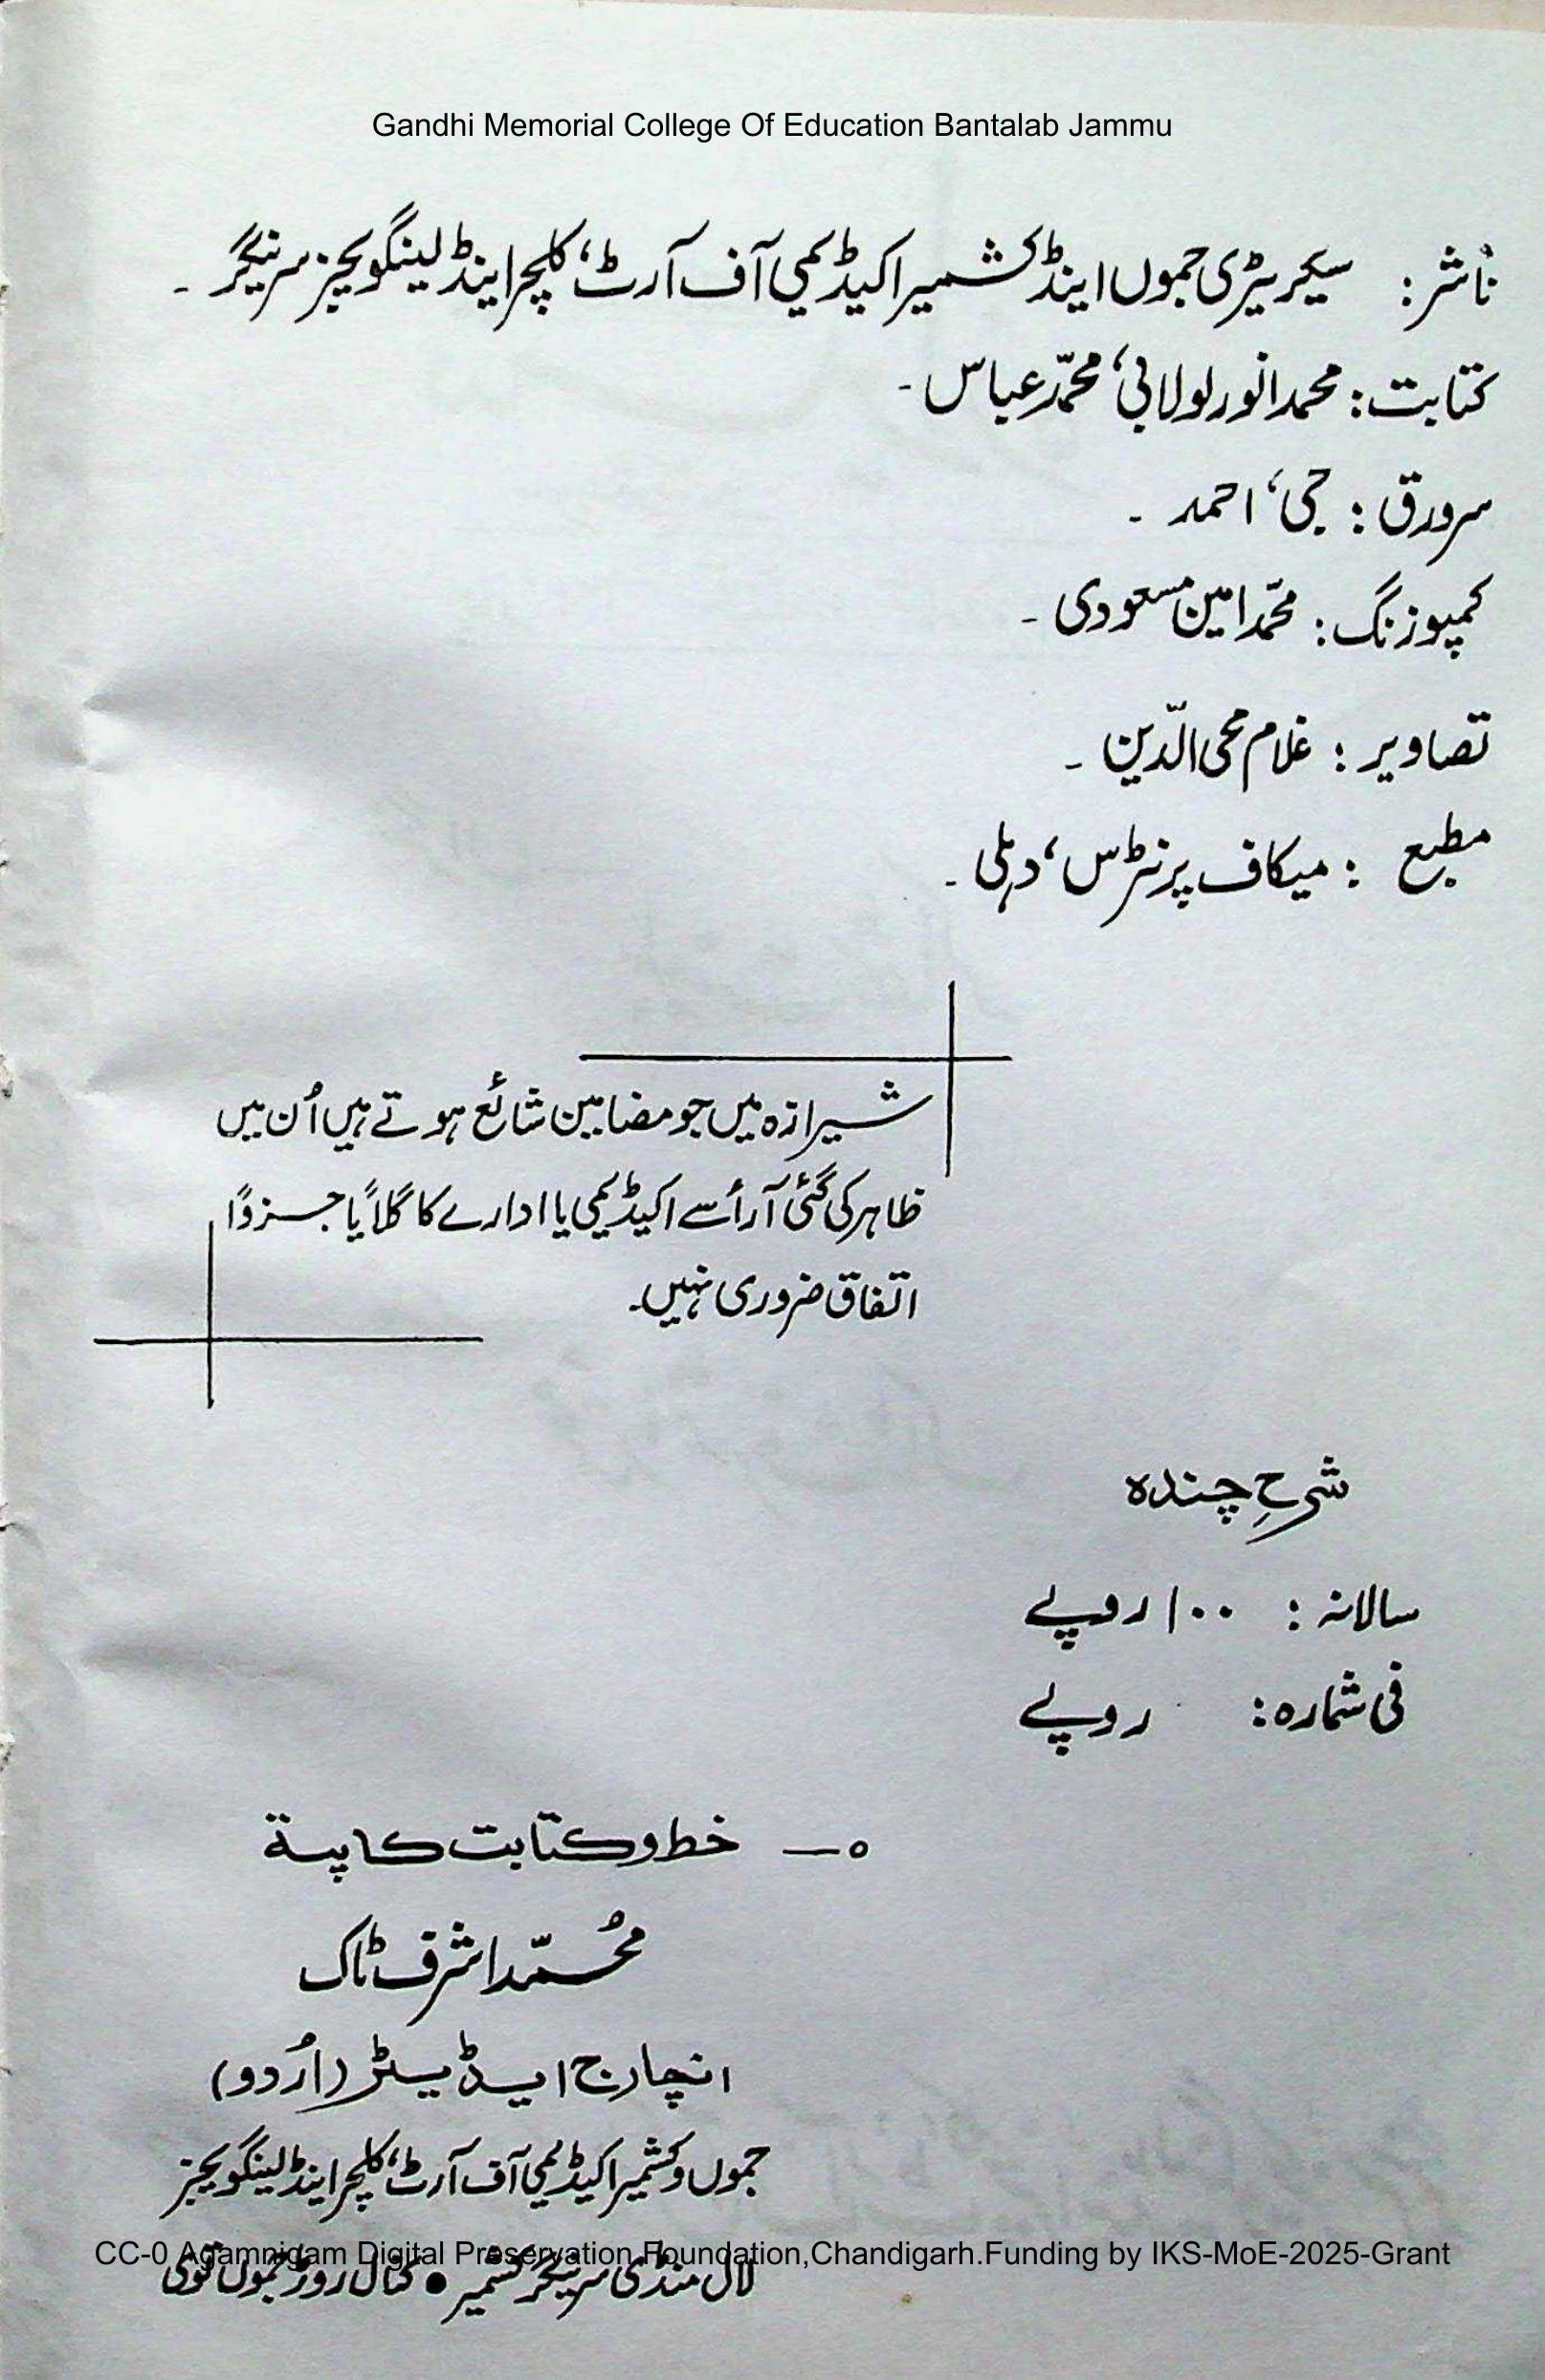 Gandhi Memorial College Of Education Bantalab Jammu
ناشر: سیکریٹری جموں اینڈ کشمیر اکیڈیمی آف آرٹ، کلچر اینڈ لینگویجز سرینگر ۔
کتابت: محمد انور لولابی، محمّد عباس ۔
سرورق: جی، احمد ۔
کمپوزنگ: محمّد امین مسعودی ۔
تصاویر: غلام محی الدّین ۔
مطبع: میکاف پرنٹرس، دہلی ۔
شیرازہ میں جو مضامین شائع ہوتے ہیں اُن میں
ظاہر کی گئی آرأ سے اکیڈیمی یا ادارے کا کُلاً یا جزوًا
اتفاق ضروری نہیں۔
شرحِ چندہ
سالانہ: ۱۰۰ روپے
فی شمارہ: روپے
۵— خط و کتابت کا پتہ
محُمّد اشرف ٹاک
انچارج ایڈیٹر (اُردو)
جموں و کشمیر اکیڈیمی آف آرٹ، کلچر اینڈ لینگویجز
CC-0 Agamnigam Digital Preservation Foundation,Chandigarh.Funding by IKS-MoE-2025-Grant
لال منڈی سرینگر کشمیر ● کنال روڑ جموں توی